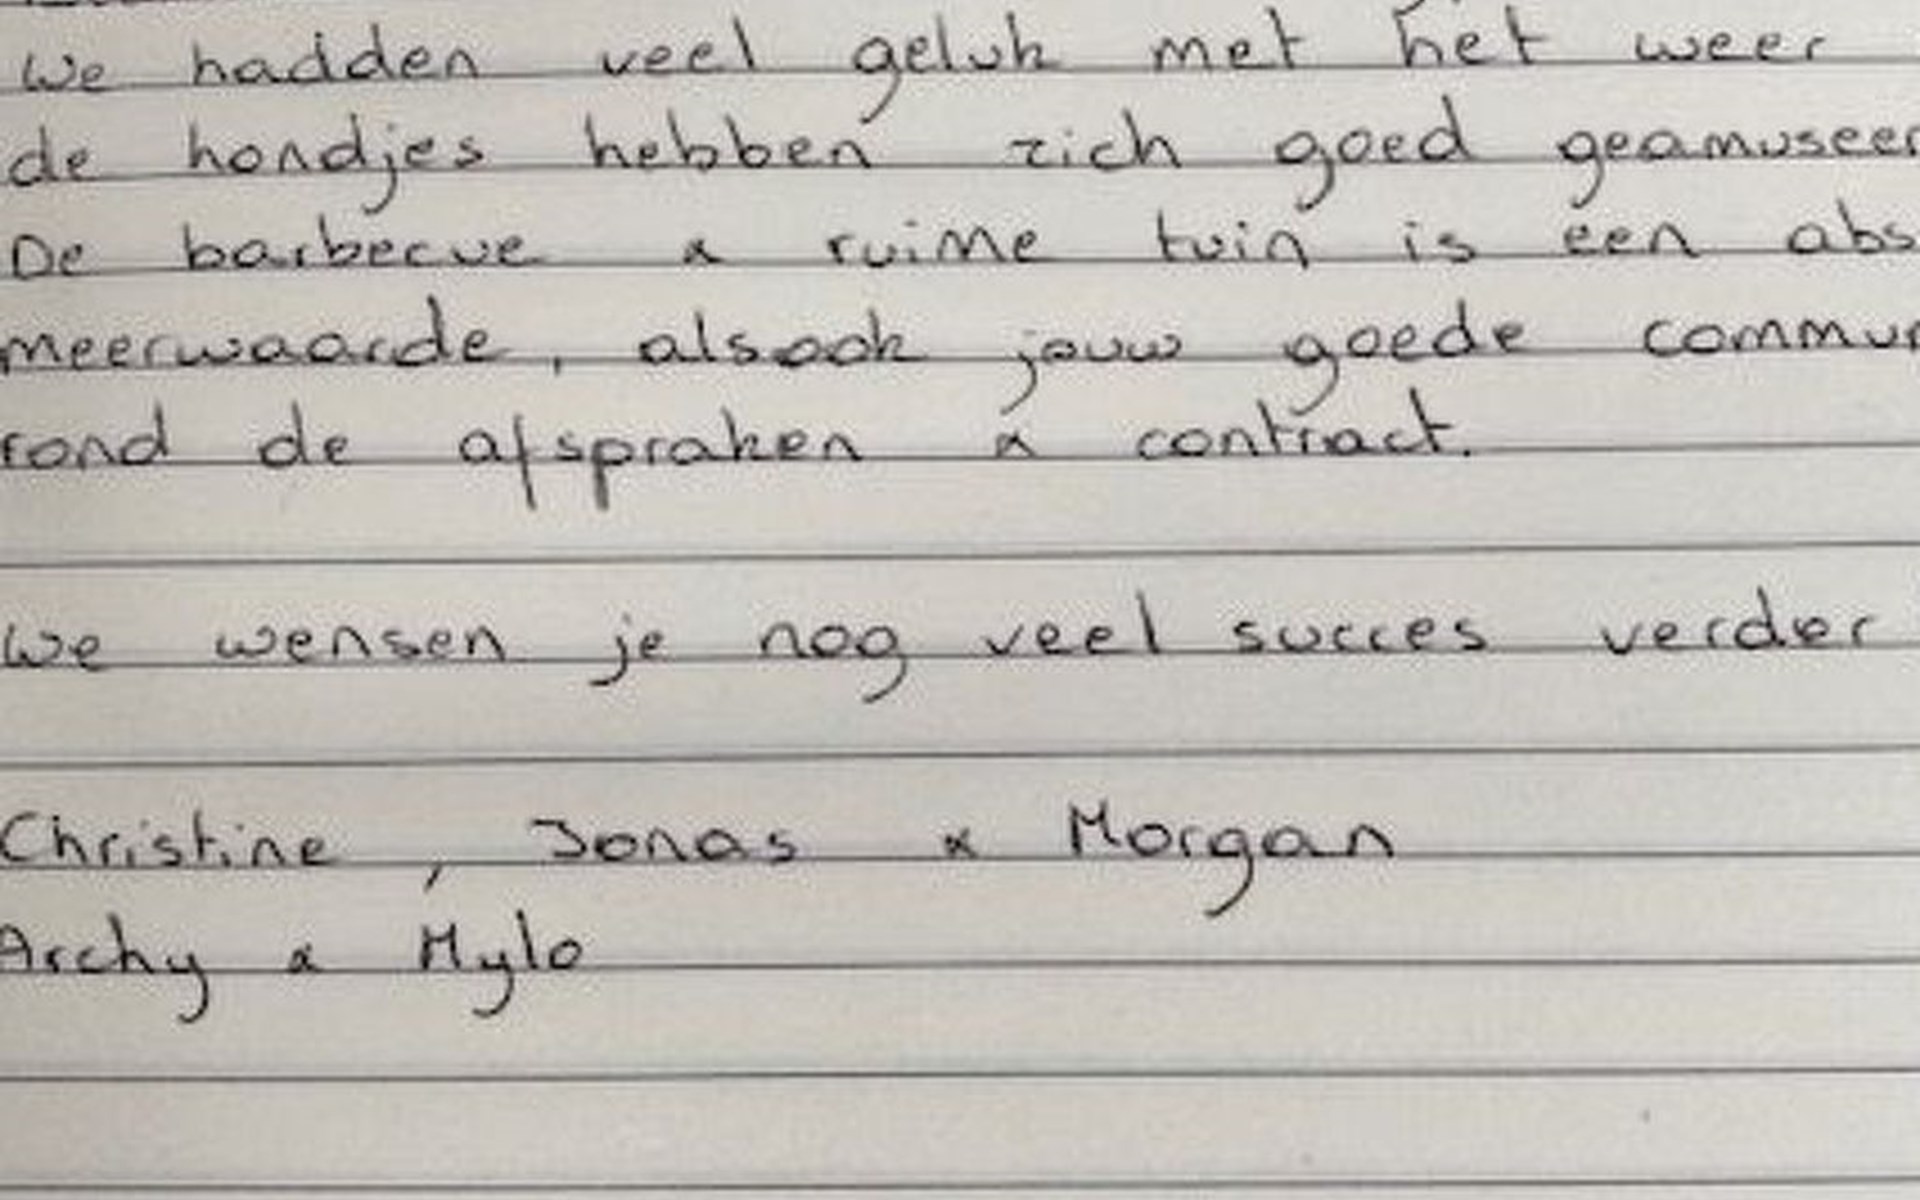 We hadden veel geluk met het weer
de hondjes hebben zich goed geamuseer
De barbecue & ruime tuin is een abs
meerwaarde, alsook jouw goede commun
rond de afspraken & contract.
We wensen je nog veel succes verder
Christine, Jonas & Morgan
Archy & Mylo